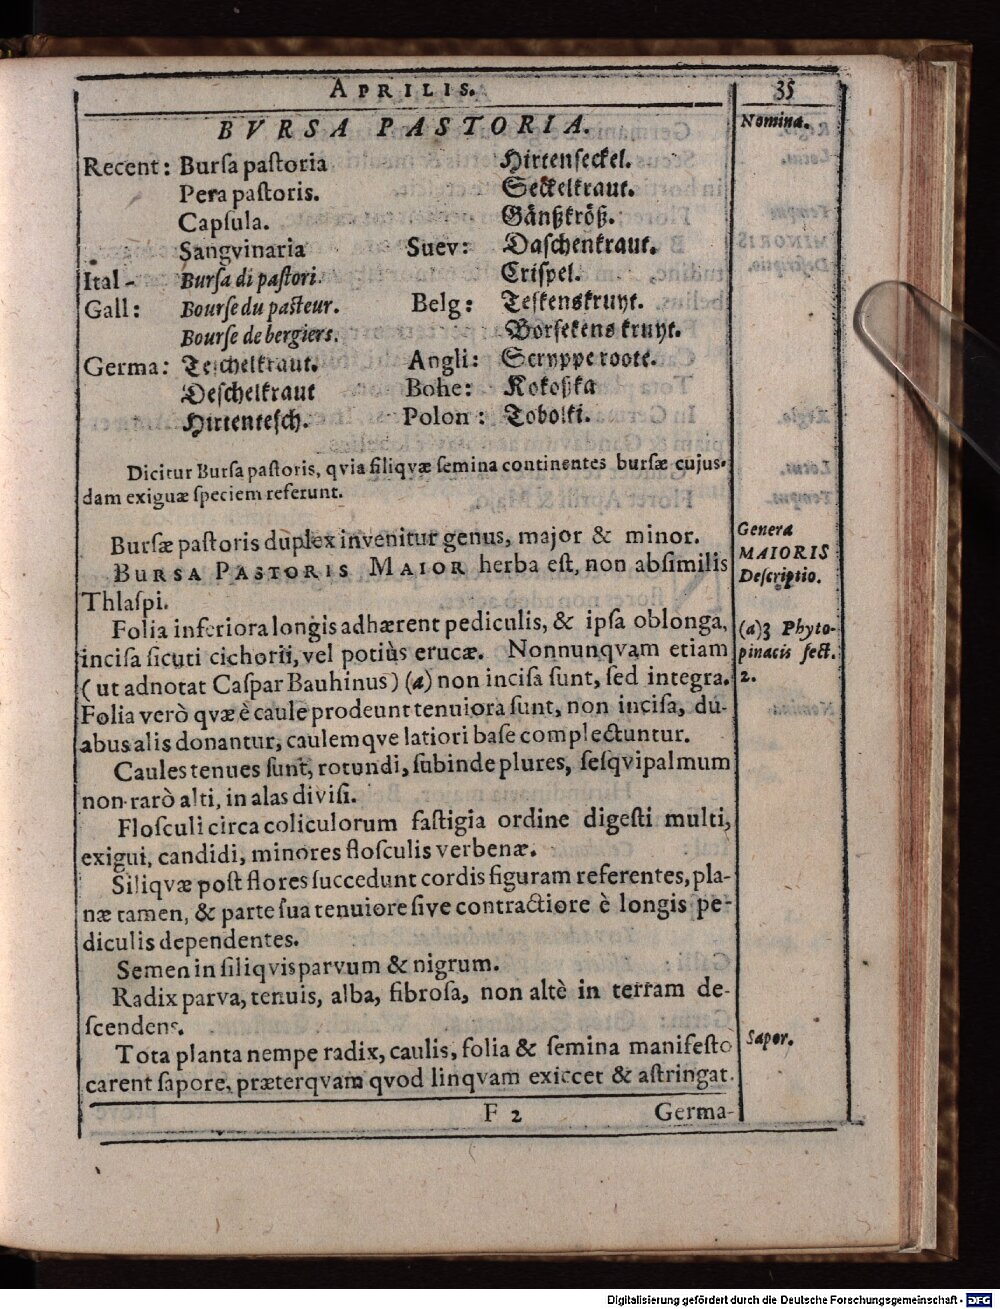 APRILIS. 35
BVRSA PASTORIA. Nomina.
Recent: Burſa paſtoria Hirtenſeckel.
Pera paſtoris. Seckelkraut.
Capſula. Gänßkröß.
Sangvinaria Suev: Daſchenkraut.
Ital- Burſa di paſtori. Criſpel.
Gall: Bourſe du paſteur. Belg: Teſkenskruyt.
Bourſe de bergiers. Borſekens kruyt.
Germa: Teſchelkraut. Angli: Scryppe roote.
Deſchelkraut Bohe: Kokoſſka
Hirtenteſch. Polon: Tobolki.
Dicitur Burſa paſtoris, qvia ſiliqvæ ſemina continentes burſæ cujus-
dam exiguæ ſpeciem referunt.
Burſæ paſtoris duplex invenitur genus, major & minor. Genera
BURSA PASTORIS MAIOR herba eſt, non abſimilis MAIORIS
Thlaſpi. Deſcriptio.
Folia inferiora longis adhærent pediculis, & ipſa oblonga, (a)3 Phyto-
inciſa ſicuti cichorii, vel potiùs erucæ. Nonnunqvam etiam pinacis ſect.
(ut adnotat Caſpar Bauhinus) (a) non inciſa ſunt, ſed integra. 2.
Folia verò qvæ è caule prodeunt tenuiora ſunt, non inciſa, du-
abus alis donantur, caulemqve latiori baſe complectuntur.
Caules tenues ſunt, rotundi, ſubinde plures, ſeſqvipalmum
non rarò alti, in alas diviſi.
Floſculi circa coliculorum faſtigia ordine digeſti multi,
exigui, candidi, minores floſculis verbenæ.
Siliqvæ poſt flores ſuccedunt cordis figuram referentes, pla-
næ tamen, & parte ſua tenuiore ſive contractiore è longis pe-
diculis dependentes.
Semen in ſiliqvis parvum & nigrum.
Radix parva, tenuis, alba, fibroſa, non altè in terram de-
ſcendens.
Tota planta nempe radix, caulis, folia & ſemina manifeſto Sapor.
carent ſapore, præterqvam qvod linqvam exiccet & aſtringat.
F 2 Germa-
Digitalisierung gefördert durch die Deutsche Forschungsgemeinschaft - DFG